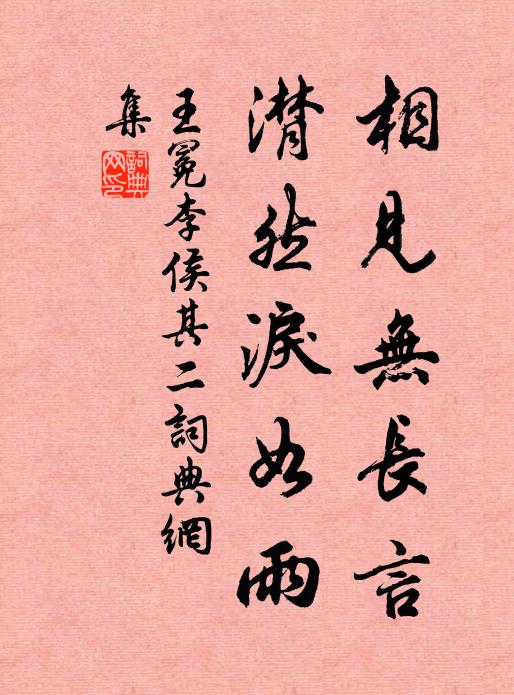 相見無長言
潸然淚如雨
王冕李侯其二詞典網
集
詞典網印